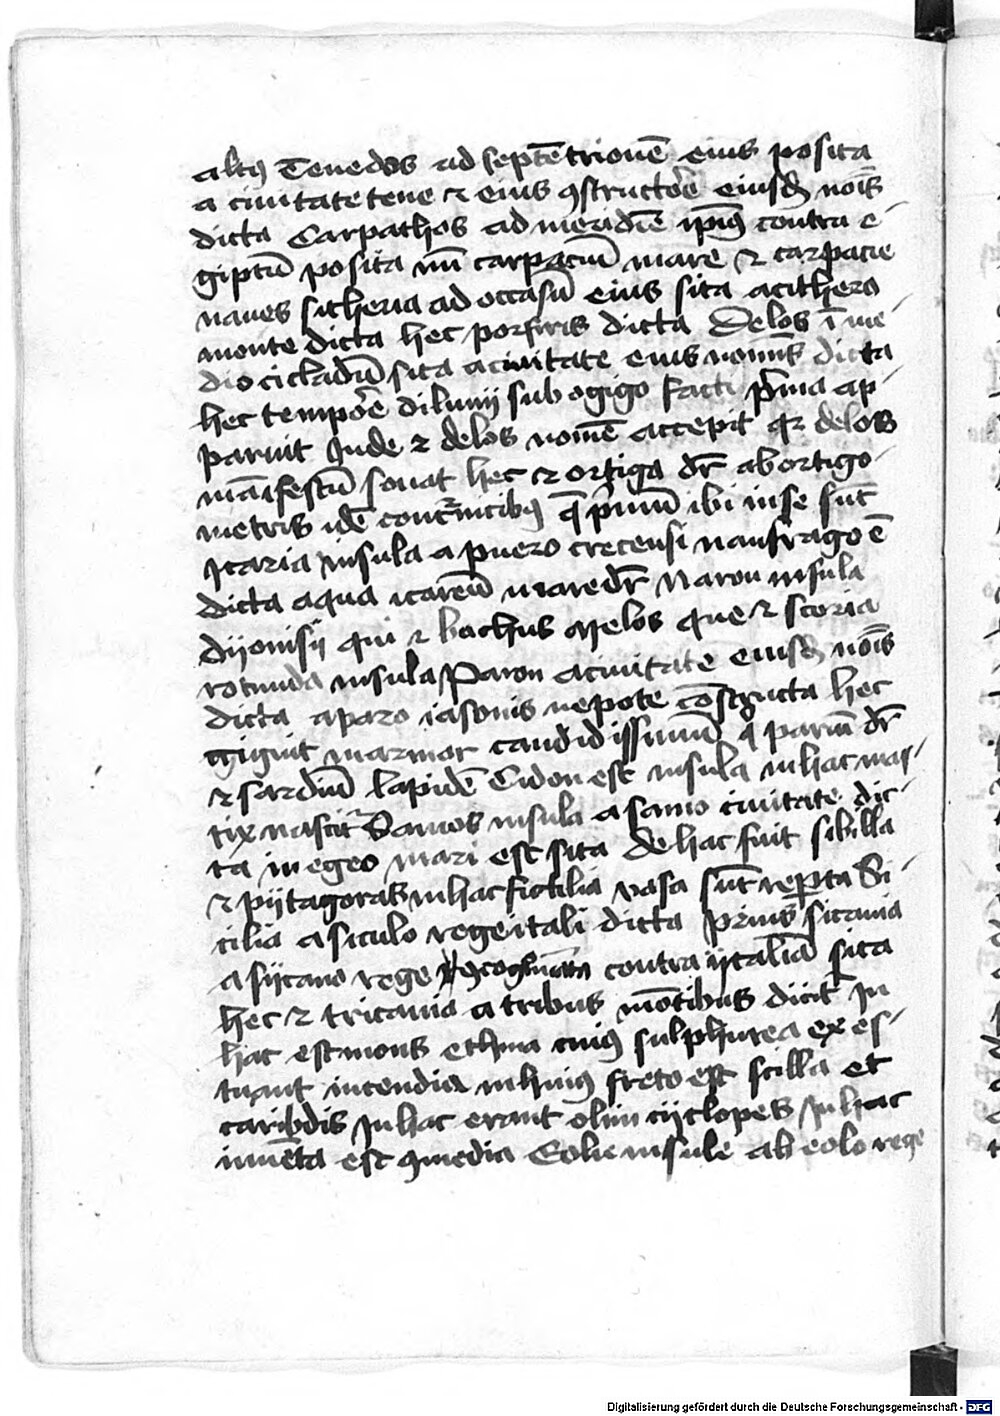 altꝰ Tenedos ad septētrionē eius posita
a ciuitate tene ⁊ eius ꝯstructore eiusdē nois̄
dicta Carpathos ad meridiē ipiꝰ contra e-
giptū posita nū carpaciū mare ⁊ carpacie
naues sitheria ad occasū eius sita acithero
monte dicta hec porfiris dicta Delos ī me
dio cicladū sita aciuitate eius nomīs dicta
hec tempoē diluuij sub ogigo facti pͥma ap-
paruit Jnde ⁊ delos nomē accepit qꝛ delos
māifestū sonat hec ⁊ ortiga dr̄ abortigo-
metris idē coturnicibꝰ q̄ pͥmū ibi inse sūt
Jcaria insula a puero crecensi naufrago ē
dicta aqua icareū mare dr̄ Naron insula
dijonisij qui ⁊ bachus Melos que ⁊ storia
rotunda insula Paron aciuitate eiusdē nois̄
dicta aparo iasonis nepote cōstructa hec
gignit marmor candidissimū qͥ pariū dr̄
⁊ sardiū lapidē Cidon est insula inhac mas-
tix nascitͬ Samos insula a samo ciuitate dic-
ta in egeo mari est sita de hac fuit sibilla
⁊ pijtagoras inhac fictilia vasa sūt reperta Si-
cilia a siculo rege itali dicta prius sicania
a sijcano rege contra ijtaliā sita
hec ⁊ tricania a tribus mōtibus dicitͬ Jn
hac est mons ethna cuiꝰ sulphurea ex es-
tuant incendia inhuiꝰ freto est scilla et
caribdis Jnhac erant olim cijclopes Jnhac
inuēta est ꝯmedia Eolie insule ab eolo rege
Digitalisierung gefördert durch die Deutsche Forschungsgemeinschaft - DFG